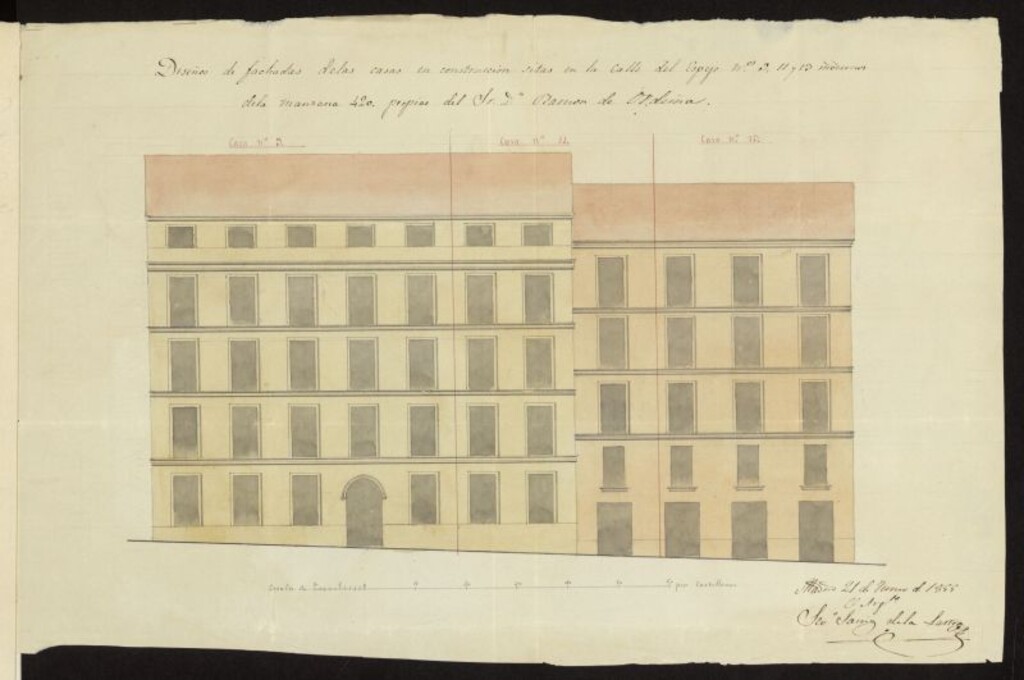 Diseños de fachadas de las casas en construccion sitas en la Calle del Espejo n.os 9, 11 y 13
de la manzana 420. propias del Sr. Dn. Ramon de
Casa Nº 9.
Casa Nº 11.
Casa Nº 13.
Escala de
pies Castellanos
Madrid 21 de Enero de 1855
El Arqto
de la